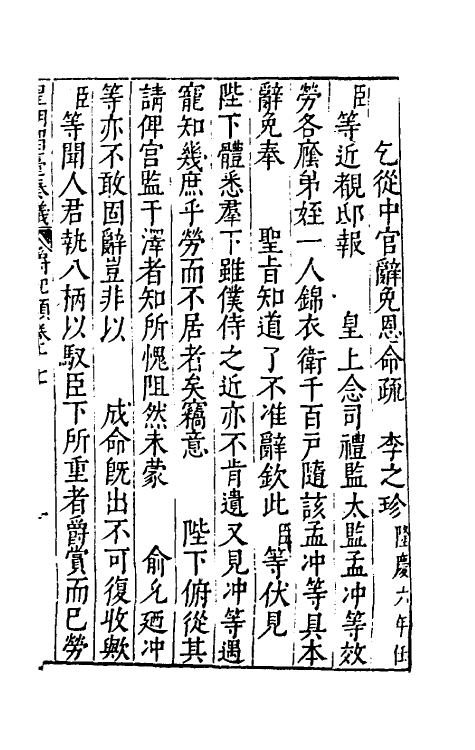 乞從中官辭免恩命疏 李之珍 隆慶六年任
臣等近覩邸報 皇上念司禮監太監孟冲等效
勞各廕弟姪一人錦衣衛千百戸隨該孟冲等具本
辭免奉 聖旨知道了不准辭欽此臣等伏見
陛下體悉羣下雖僕侍之近亦不肯遺又見冲等遇
寵知幾庶乎勞而不居者矣竊意 陛下俯從其
請俾官監干澤者知所愧阻然未蒙 俞允廼冲
等亦不敢固辭豈非以 成命旣出不可復收歟
臣等聞人君執八柄以馭臣下所重者爵賞而已勞